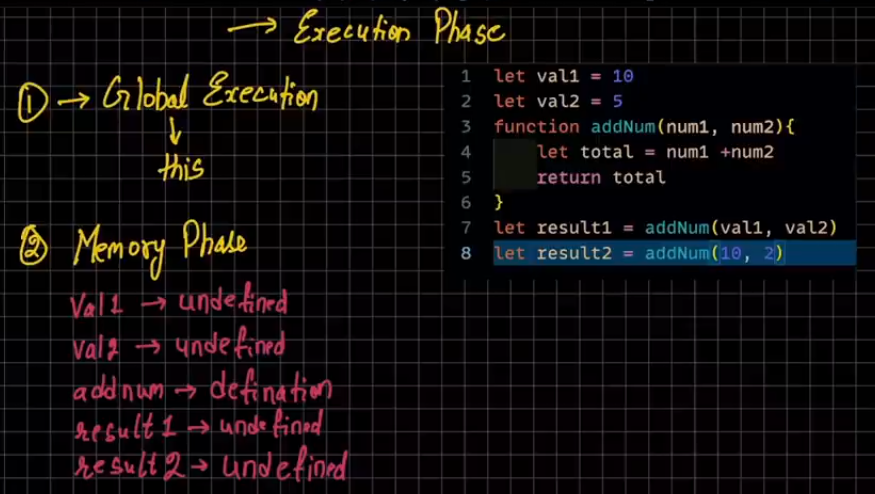 → Execution Phase
① → Global Execution
↓
this
② Memory Phase
Val1 → undefined
val2 → undefined
addnum → defination
result1 → undefined
result2 → undefined
1 let val1 = 10
2 let val2 = 5
3 function addNum(num1, num2){
4 let total = num1 +num2
5 return total
6 }
7 let result1 = addNum(val1, val2)
8 let result2 = addNum(10, 2)